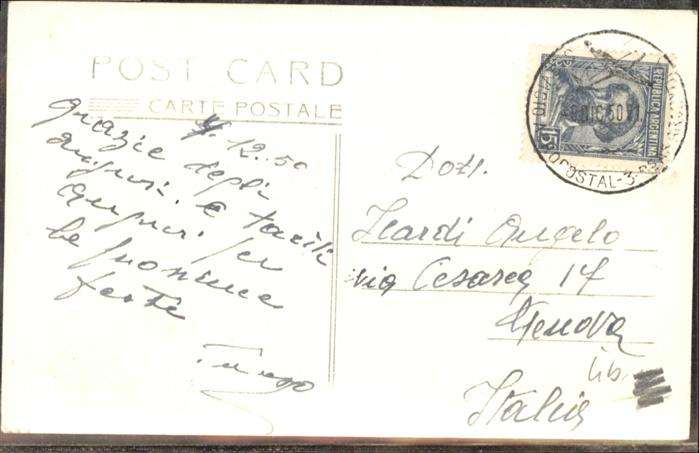 POST CARD
CARTE POSTALE
12.50
grazie degli
auguri. e tanti
auguri per
le prossime
feste
Dott.
Icardi Angelo
via Cesarea 17
Genova
Italia
REPUBLICA ARGENTINA
15c
DIC.50
POSTAL-3-